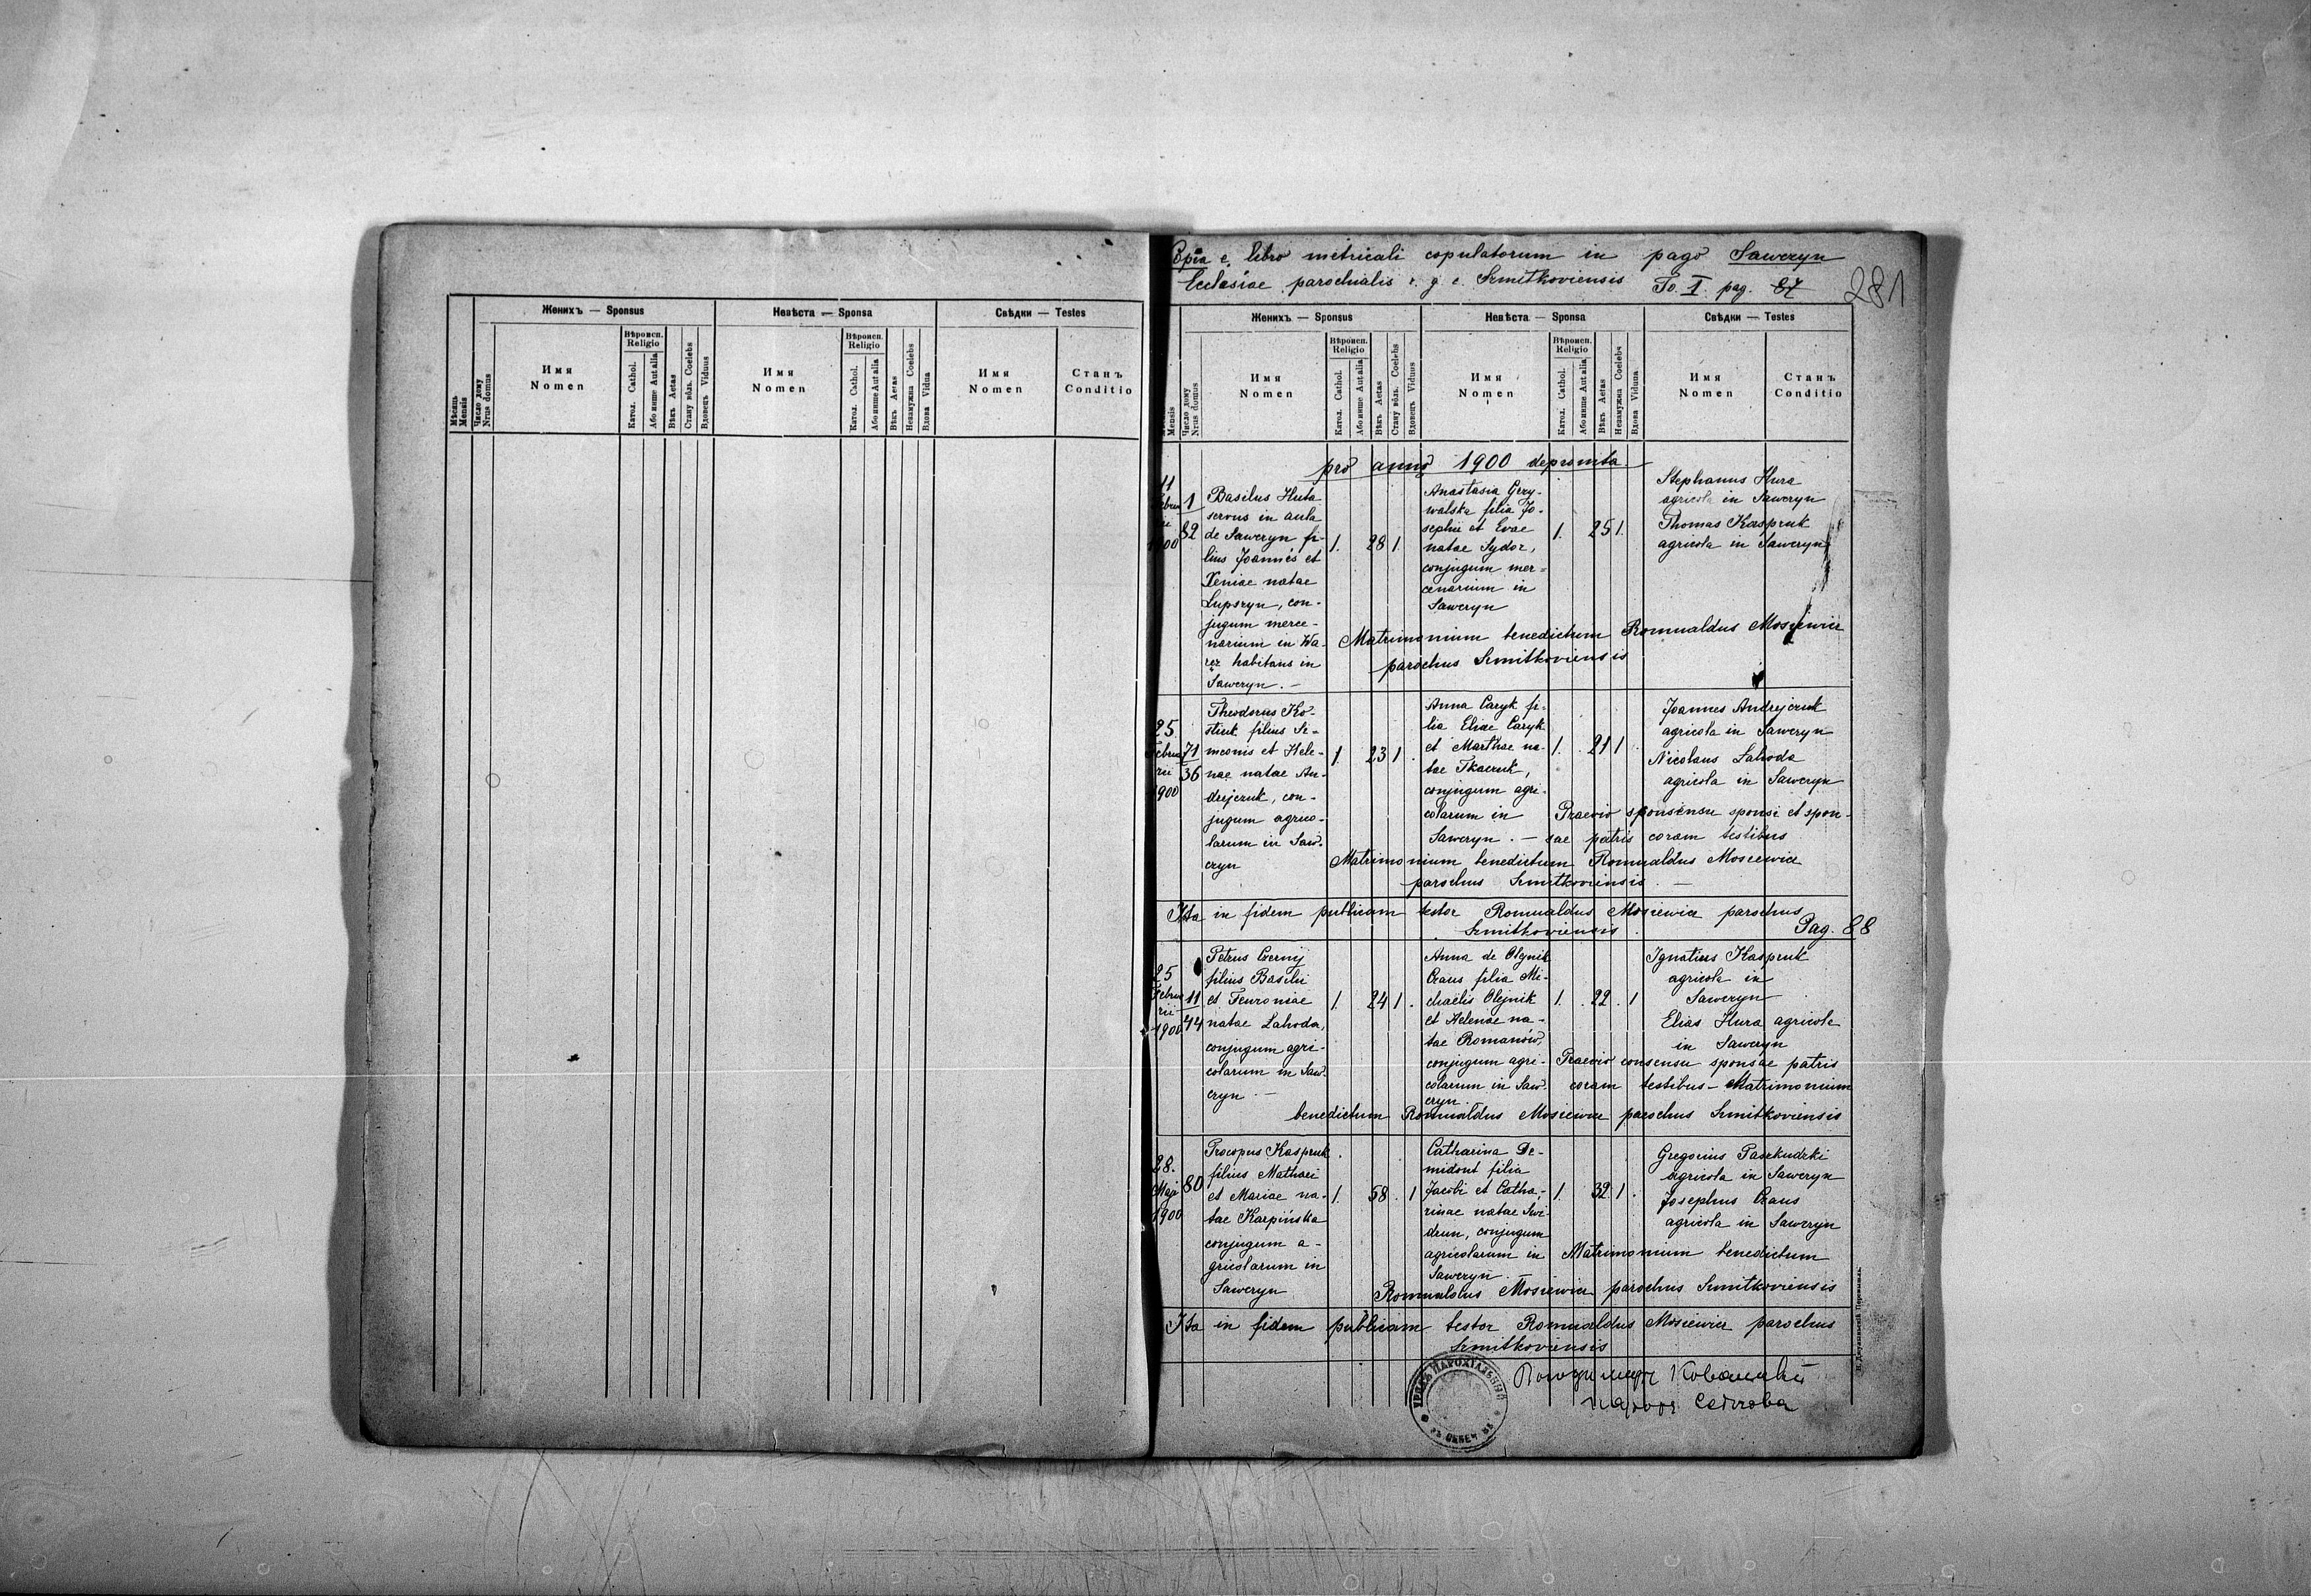 Женихъ — Sponsus
Невѣста — Sponsa
Свѣдки — Testes
Мѣсяць Mensis
Число дому Nrus domus
Имя
Nomen
Вѣроисп.
Religio
Катол. Cathol.
Або инше Aut alia
Вѣкъ Aetas
Стану вôль. Coelebs
Вдовець Viduus
Имя
Nomen
Вѣроисп.
Religio
Катол. Cathol.
Або инше Aut alia
Вѣкъ Aetas
Незамужна Coelebs
Вдова Vidua
Имя
Nomen
Станъ
Conditio
Copia e libro metricali copulatorum in pago Saweryn
Ecclesiae parochialis r. g. c. Szmitkoviensis To. I. pag. 87
281
Женихъ — Sponsus
Невѣста — Sponsa
Свѣдки — Testes
Mensis
Число дому Nrus domus
Имя
Nomen
Вѣроисп.
Religio
Катол. Cathol.
Або инше Aut alia
Вѣкъ Aetas
Стану вôль. Coelebs
Вдовець Viduus
Имя
Nomen
Вѣроисп.
Religio
Катол. Cathol.
Або инше Aut alia
Вѣкъ Aetas
Незамужна Coelebs
Вдова Viduna
Имя
Nomen
Станъ
Conditio
pro anno 1900 depromta
11
Februa
rii
1900
1
82
Basilus Huta
servus in aula
de Saweryn fi-
lius Joannis et
Xeniae natae
Lupszyn, con-
jugum merce-
narium in Wa-
rez habitans in
Saweryn. —
1. 28 1.
Anastasia Gery-
walska filia Jo-
sephi et Evae
natae Sydor,
conjugum mer=
cenarium in
Saweryn
1. 25 1.
Stephanus Hura
agricola in Saweryn
Thomas Kaspruk
agricola in Saweryn
Matrimonium benedictum Romualdus Mosiewicz
parochus Szmitkoviensis
25.
Februa
rii
1900
71
36
Theodorus Ko-
stiuk filius Si=
meonis et Hele-
nae natae An-
drejczuk, con-
jugum agrico-
larum in Saw-
eryn
1. 23 1.
Anna Caryk fi-
lia Eliae Caryk
et Marthae na-
tae Tkaczuk,
conjugum agri-
colarum in
Saweryn. —
1. 21 1.
Joannes Andrejczuk
agricola in Saweryn
Nicolaus Lahoda
agricola in Saweryn
Praevio sponsensu sponsi et spon-
sae patris coram testibus
Matrimonium benedictum Romualdus Mosiewicz
parochus Szmitkoviensis. —
Ita in fidem publicam testor Romualdus Mosiewicz parochus
Szmitkoviensis.
Pag. 88
25
Februa
rii
1900
11
44
Petrus Czernij
filius Basilii
et Feuroniae
natae Lahoda,
conjugum agri-
colarum in Saw-
eryn. —
1. 24 1.
Anna de Olejnik
Czaus filia Mi-
chaëlis Olejnik
et Helenae na-
tae Romanów,
conjugum agri-
colarum in Saw-
eryn.
1. 22. 1
Ignatius Kaspruk
agricola in
Saweryn
Elias Hura agricola
in Saweryn
Praevio consensu sponsae patris
coram testibus — Matrimonium
benedictum Romualdus Mosiewicz parochus Szmitkoviensis
28.
Maji
1900
80
Procopus Kaspruk
filius Mathaei
et Mariae na-
tae Karpińska
conjugum a-
gricolarum in
Saweryn
1. 58. 1
Catharina De-
midont filia
Jacobi et Catha-
rinae natae Swi-
drun, conjugum
agricolarum in
Saweryn.
1. 32 1.
Gregorius Paszkudzki
agricola in Saweryn
Josephus Czaus
agricola in Saweryn
Matrimonium benedictum
Romualdus Mosiewicz parochus Szmitkoviensis
Ita in fidem publicam testor Romualdus Mosiewicz parochus
Szmitkoviensis